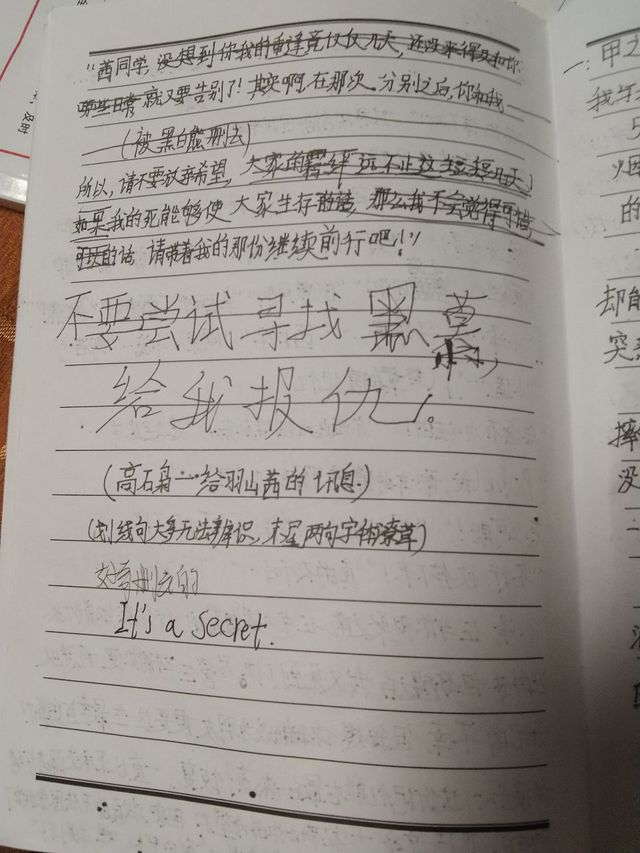 “茜同学,没想到你我的重逢竟仅仅几天,还没来得及和你
哪些日常就又要告别了!其实啊,在那次分别之后,你和我——
(被黑白熊删去)
所以,请不要放弃希望,大家的羁绊远不止这短短几天,
如果我的死能够使大家生存的话,那么我不会觉得可惜,
可以的话请带着我的那份继续前行吧!”
不要尝试寻找黑幕,
给我报仇。
(高石舟一给羽山茜的讯息)
(划线句大多无法辨识,末尾两句字体潦草)
好奇删去的
It's a secret.
一:甲
我
烟
的
却能
突
摔
没